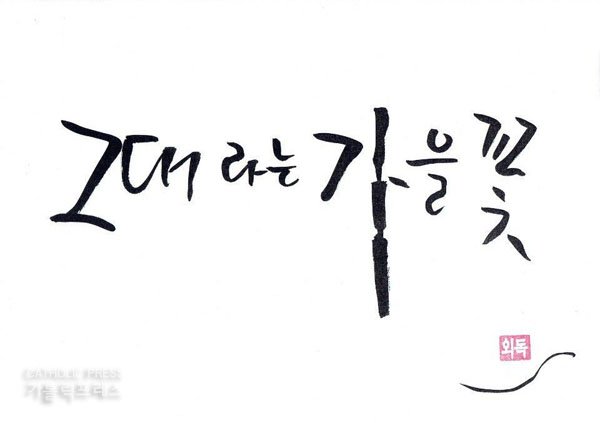 그대라는 가을꽃
외독
CATHOLIC PRESS
가톨릭프레스